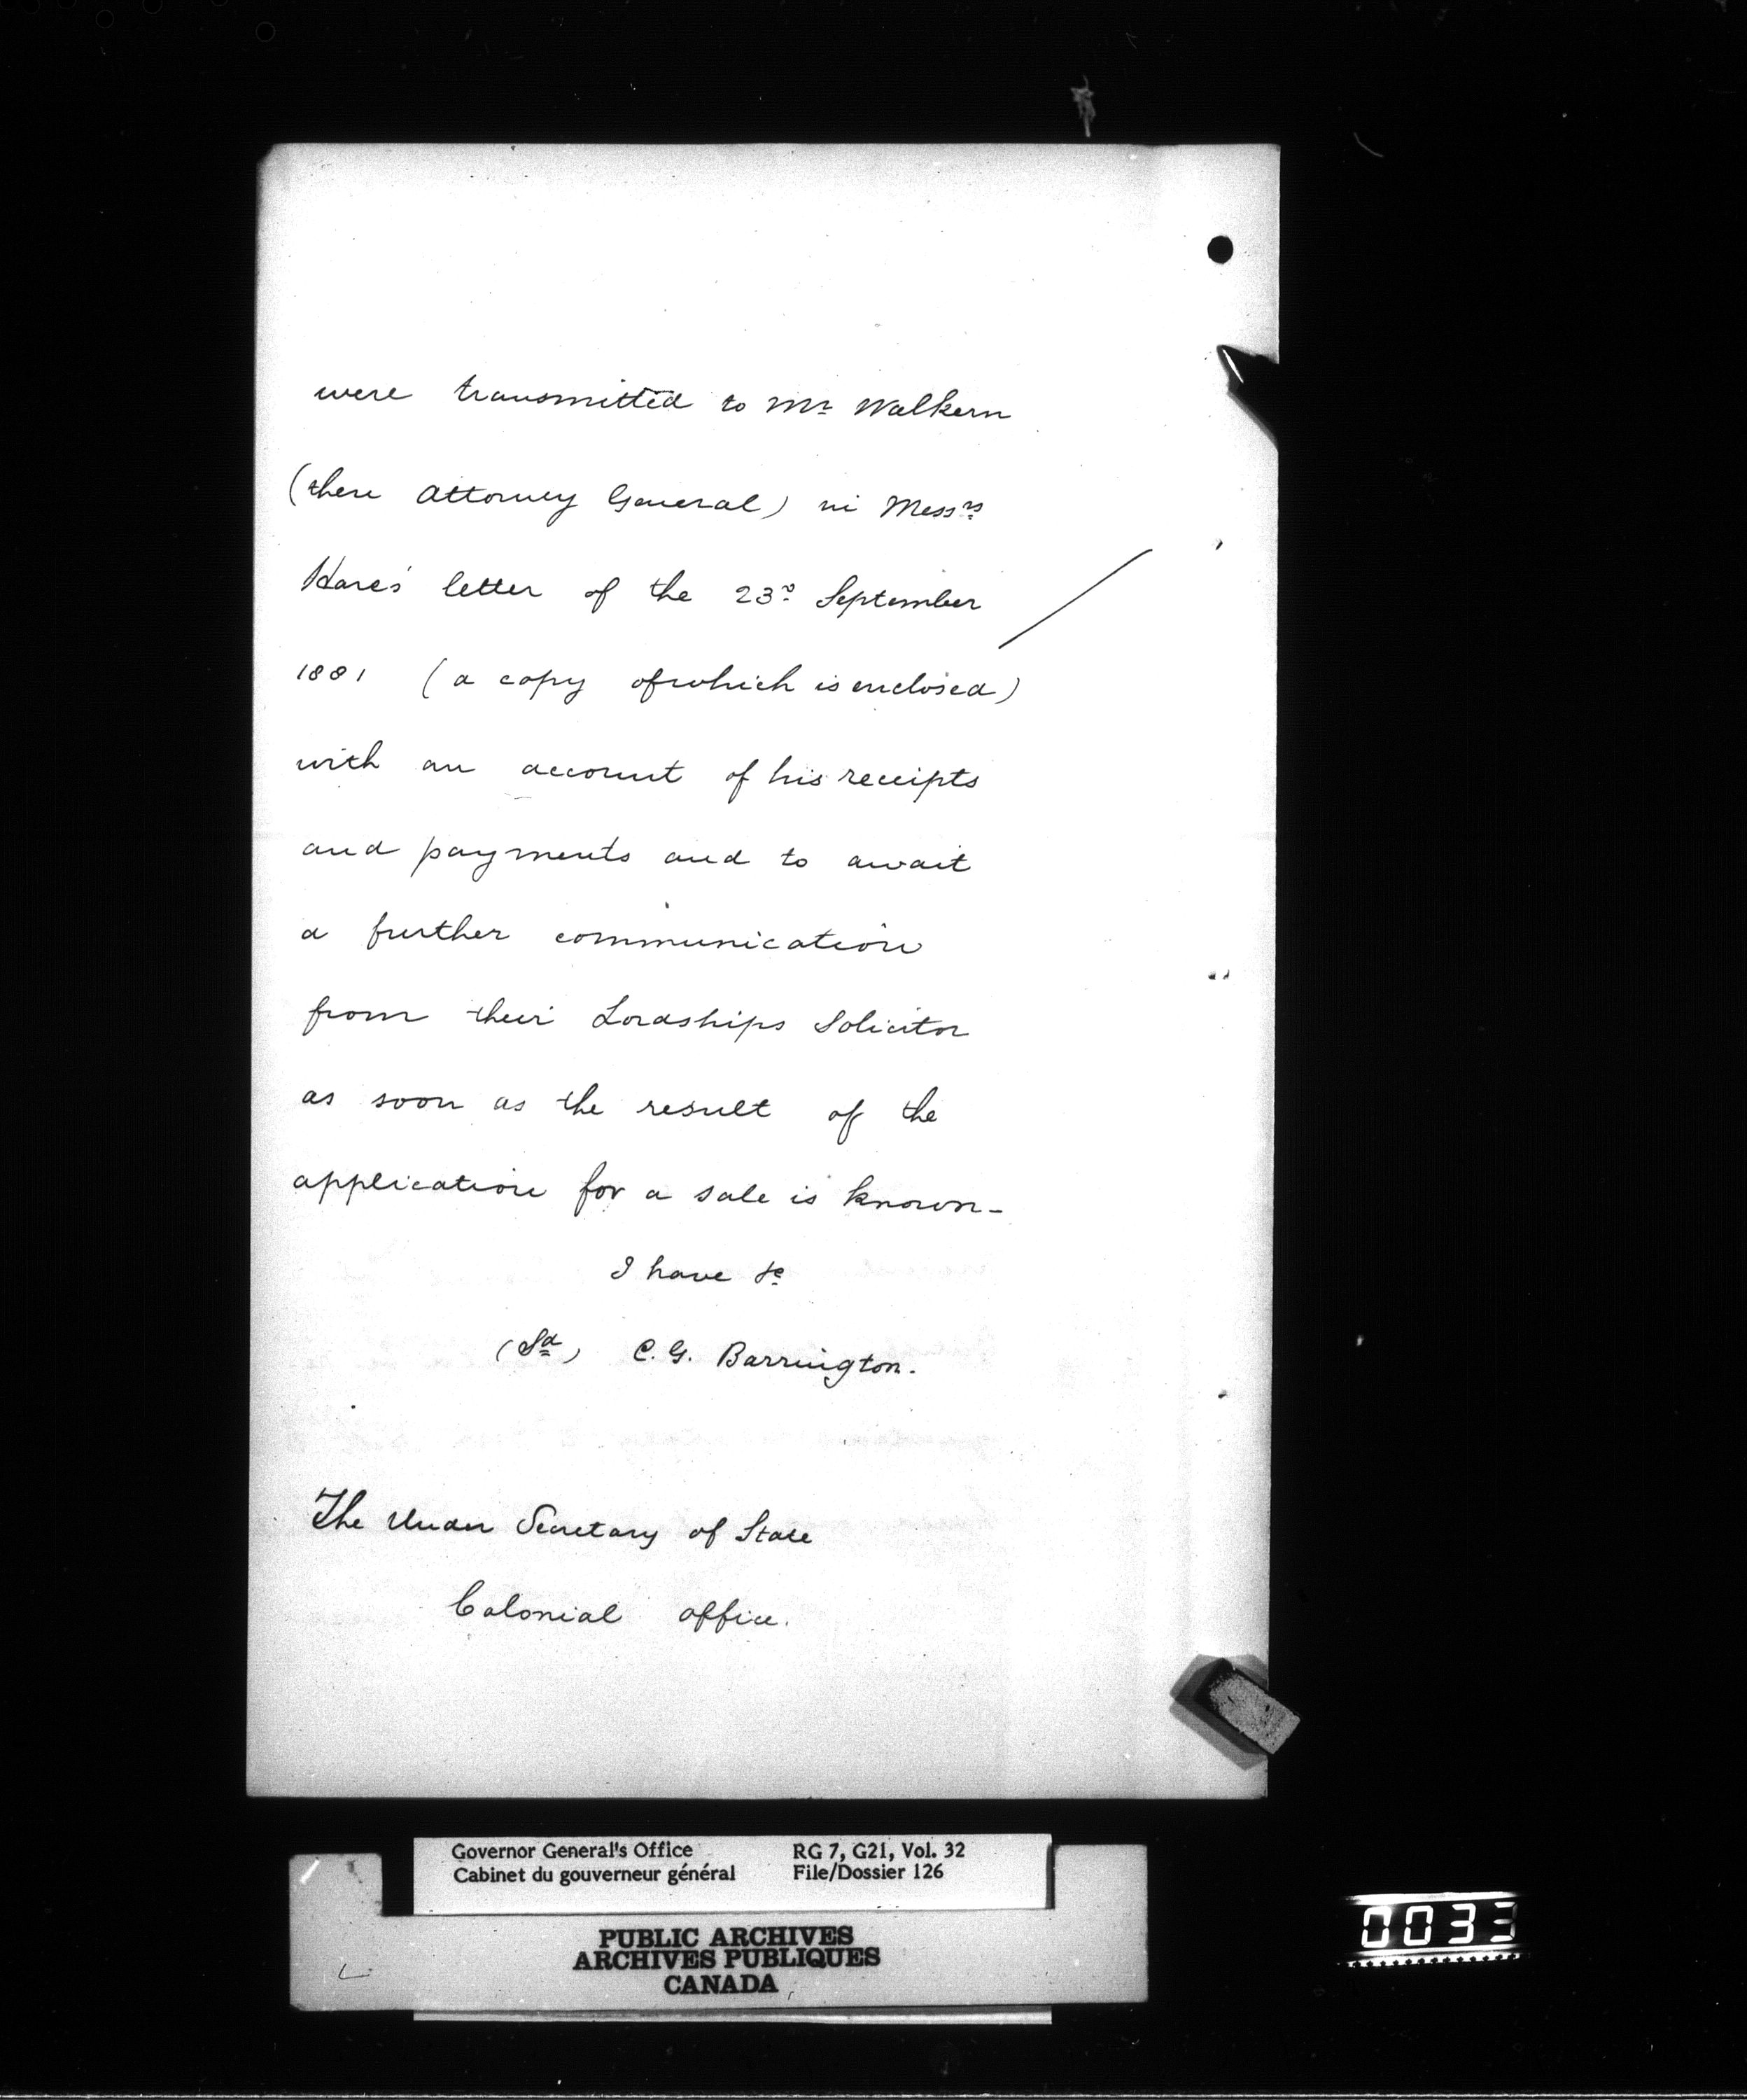 were transmitted to Mr Walkern
(then Attorney General) in Messrs
Hare's letter of the 23rd September
1881 (a copy of which is enclosed)
with an account of his receipts
and payments and to await
a further communication
from their Lordships Solicitor
as soon as the result of the
application for a sale is known-
I have &c
(Sd) C. G. Barrington.
The Under Secretary of State
Colonial Office.
Governor General's Office RG 7, G21, Vol. 32
Cabinet du gouverneur général File/Dossier 126
PUBLIC ARCHIVES
ARCHIVES PUBLIQUES
CANADA
0033